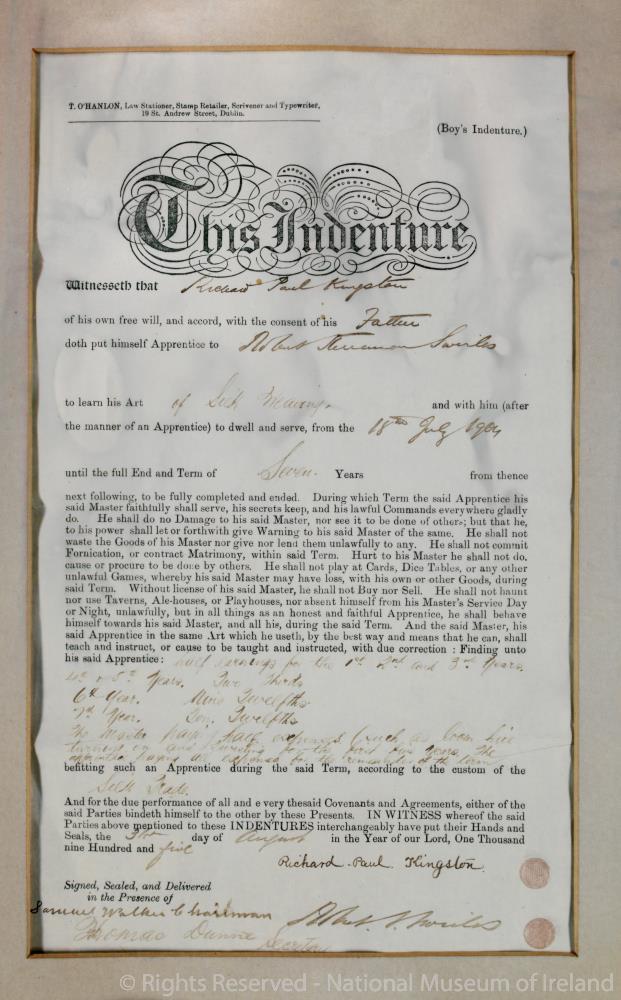 T. O'HANLON, Law Stationer, Stamp Retailer, Scrivener and Typewriter,
19 St. Andrew Street, Dublin.
(Boy's Indenture.)
This Indenture
Witnesseth that Richard Paul Kingston
of his own free will, and accord, with the consent of his Father
doth put himself Apprentice to Robert Swirles
to learn his Art of Silk Weaving and with him (after
the manner of an Apprentice) to dwell and serve, from the 18th July 1904
until the full End and Term of Seven Years from thence
next following, to be fully completed and ended. During which Term the said Apprentice his
said Master faithfully shall serve, his secrets keep, and his lawful Commands everywhere gladly
do. He shall do no Damage to his said Master, nor see it to be done of others; but that he,
to his power shall let or forthwith give Warning to his said Master of the same. He shall not
waste the Goods of his Master nor give nor lend them unlawfully to any. He shall not commit
Fornication, or contract Matrimony, within said Term. Hurt to his Master he shall not do.
cause or procure to be done by others. He shall not play at Cards, Dice Tables, or any other
unlawful Games, whereby his said Master may have loss, with his own or other Goods, during
said Term. Without license of his said Master, he shall not Buy nor Sell. He shall not haunt
nor use Taverns, Ale-houses, or Playhouses, nor absent himself from his Master's Service Day
or Night, unlawfully, but in all things as an honest and faithful Apprentice, he shall behave
himself towards his said Master, and all his, during the said Term. And the said Master, his
said Apprentice in the same Art which he useth, by the best way and means that he can, shall
teach and instruct, or cause to be taught and instructed, with due correction : Finding unto
his said Apprentice: half earnings for the 1st 2nd and 3rd Years.
4th & 5th Years. Two Thirds
6th Year. Nine Twelfths
7th Year. Ten Twelfths
The Master paying half expenses (such as loom hire
turning on and for the first Years. The
apprentice paying all expenses for the remainder of the term
befitting such an Apprentice during the said Term, according to the custom of the
Silk Trade.
And for the due performance of all and e very thesaid Covenants and Agreements, either of the
said Parties bindeth himself to the other by these Presents. IN WITNESS whereof the said
Parties above mentioned to these INDENTURES interchangeably have put their Hands and
Seals, the day of August in the Year of our Lord, One Thousand
nine Hundred and five
Richard Paul Kingston.
Signed, Sealed, and Delivered
in the Presence of
Samuel Walker Chairman
Robt. Swirles
Thomas Dunne Secretary
© Rights Reserved - National Museum of Ireland